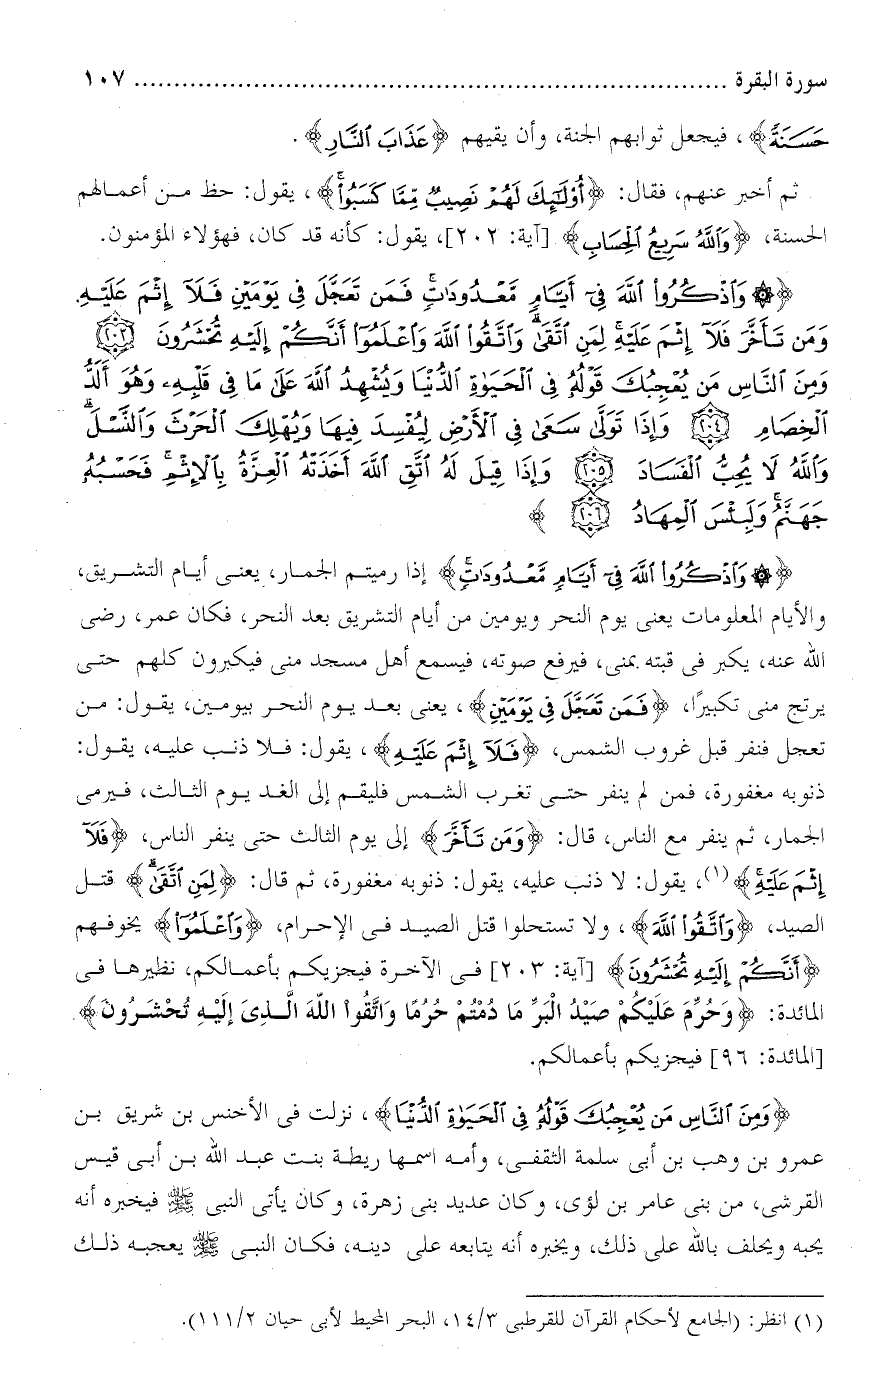 سورة البقرة ........................................................................ ١٠٧
حَسَنَةً﴾، فيجعل ثوابهم الجنة، وأن يقيهم ﴿عَذَابَ ٱلنَّارِ﴾.
ثم أخبر عنهم، فقال: ﴿أُوْلَٰٓئِكَ لَهُمْ نَصِيبٌ مِّمَّا كَسَبُوا۟ۚ﴾، يقول: حظ من أعمالهم
الحسنة، ﴿وَٱللَّهُ سَرِيعُ ٱلْحِسَابِ﴾ [آية: ٢٠٢]، يقول: كأنه قد كان، فهؤلاء المؤمنون.
﴿۞ وَٱذْكُرُوا۟ ٱللَّهَ فِىٓ أَيَّامٍ مَّعْدُودَٰتٍۚ فَمَن تَعَجَّلَ فِى يَوْمَيْنِ فَلَآ إِثْمَ عَلَيْهِ
وَمَن تَأَخَّرَ فَلَآ إِثْمَ عَلَيْهِۚ لِمَنِ ٱتَّقَىٰۗ وَٱتَّقُوا۟ ٱللَّهَ وَٱعْلَمُوٓا۟ أَنَّكُمْ إِلَيْهِ تُحْشَرُونَ ٢٠٣
وَمِنَ ٱلنَّاسِ مَن يُعْجِبُكَ قَوْلُهُۥ فِى ٱلْحَيَوٰةِ ٱلدُّنْيَا وَيُشْهِدُ ٱللَّهَ عَلَىٰ مَا فِى قَلْبِهِۦ وَهُوَ أَلَدُّ
ٱلْخِصَامِ ٢٠٤ وَإِذَا تَوَلَّىٰ سَعَىٰ فِى ٱلْأَرْضِ لِيُفْسِدَ فِيهَا وَيُهْلِكَ ٱلْحَرْثَ وَٱلنَّسْلَۗ
وَٱللَّهُ لَا يُحِبُّ ٱلْفَسَادَ ٢٠٥ وَإِذَا قِيلَ لَهُ ٱتَّقِ ٱللَّهَ أَخَذَتْهُ ٱلْعِزَّةُ بِٱلْإِثْمِۚ فَحَسْبُهُۥ
جَهَنَّمُۚ وَلَبِئْسَ ٱلْمِهَادُ ٢٠٦﴾
﴿۞ وَٱذْكُرُوا۟ ٱللَّهَ فِىٓ أَيَّامٍ مَّعْدُودَٰتٍۚ﴾ إذا رميتم الجمار، يعنى أيام التشريق،
والأيام المعلومات يعنى يوم النحر ويومين من أيام التشريق بعد النحر، فكان عمر، رضى
الله عنه، يكبر فى قبته بمنى، فيرفع صوته، فيسمع أهل مسجد منى فيكبرون كلهم حتى
يرتج منى تكبيرًا، ﴿فَمَن تَعَجَّلَ فِى يَوْمَيْنِ﴾، يعنى بعد يوم النحر بيومين، يقول: من
تعجل فنفر قبل غروب الشمس، ﴿فَلَآ إِثْمَ عَلَيْهِ﴾، يقول: فلا ذنب عليه، يقول:
ذنوبه مغفورة، فمن لم ينفر حتى تغرب الشمس فليقم إلى الغد يوم الثالث، فيرمى
الجمار، ثم ينفر مع الناس، قال: ﴿وَمَن تَأَخَّرَ﴾ إلى يوم الثالث حتى ينفر الناس، ﴿فَلَآ
إِثْمَ عَلَيْهِۚ﴾(١)، يقول: لا ذنب عليه، يقول: ذنوبه مغفورة، ثم قال: ﴿لِمَنِ ٱتَّقَىٰۗ﴾ قتل
الصيد، ﴿وَٱتَّقُوا۟ ٱللَّهَ﴾، ولا تستحلوا قتل الصيد فى الإحرام، ﴿وَٱعْلَمُوٓا۟﴾ يخوفهم
﴿أَنَّكُمْ إِلَيْهِ تُحْشَرُونَ﴾ [آية: ٢٠٣] فى الآخرة فيجزيكم بأعمالكم، نظيرها فى
المائدة: ﴿وَحُرِّمَ عَلَيْكُمْ صَيْدُ الْبَرِّ مَا دُمْتُمْ حُرُمًا وَاتَّقُواْ اللّهَ الَّذِىَ إِلَيْهِ تُحْشَرُونَ﴾.
[المائدة: ٩٦] فيجزيكم بأعمالكم.
﴿وَمِنَ ٱلنَّاسِ مَن يُعْجِبُكَ قَوْلُهُۥ فِى ٱلْحَيَوٰةِ ٱلدُّنْيَا﴾، نزلت فى الأخنس بن شريق بن
عمرو بن وهب بن أبى سلمة الثقفى، وأمه اسمها ريطة بنت عبد الله بن أبى قيس
القرشى، من بنى عامر بن لؤى، وكان عديد بنى زهرة، وكان يأتى النبى ﷺ فيخبره أنه
يحبه ويحلف بالله على ذلك، ويخبره أنه يتابعه على دينه، فكان النبى ﷺ يعجبه ذلك
(١) انظر: (الجامع لأحكام القرآن للقرطبى ١٤/٣، البحر المحيط لأبى حيان ١١١/٢).